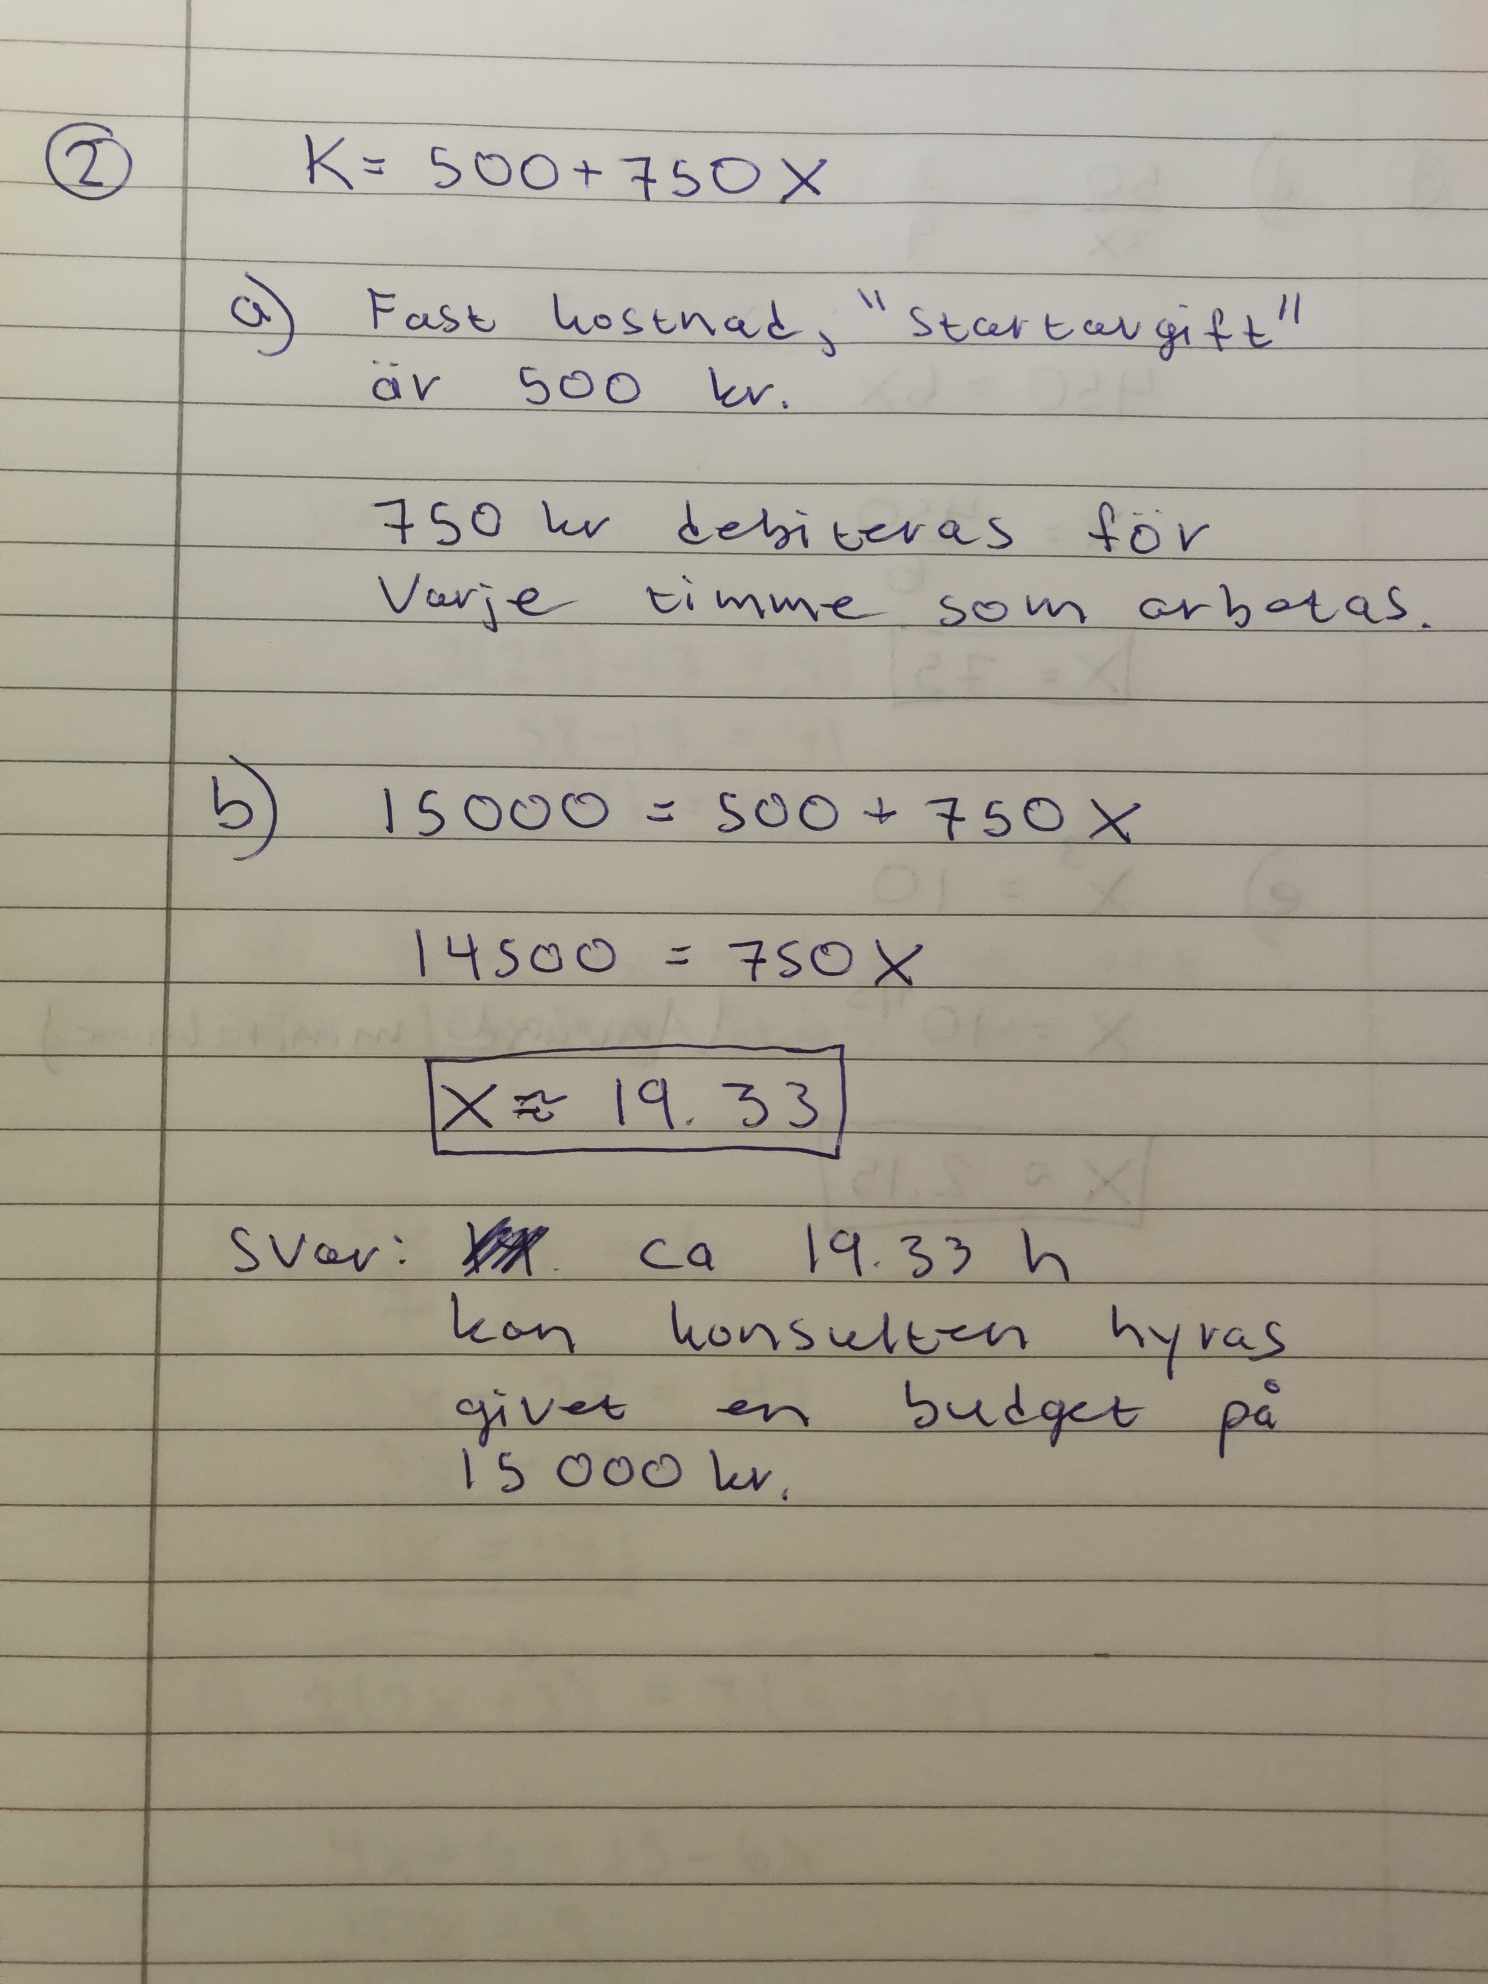 2
K = 500 + 750X
a) Fast kostnad, "startavgift"
är 500 kr.
750 kr debiteras för
Varje timme som arbetas.
b) 15000 = 500 + 750X
14500 = 750X
X ≈ 19.33
Svar: ca 19.33 h
kan konsulten hyras
givet en budget på
15 000 kr.